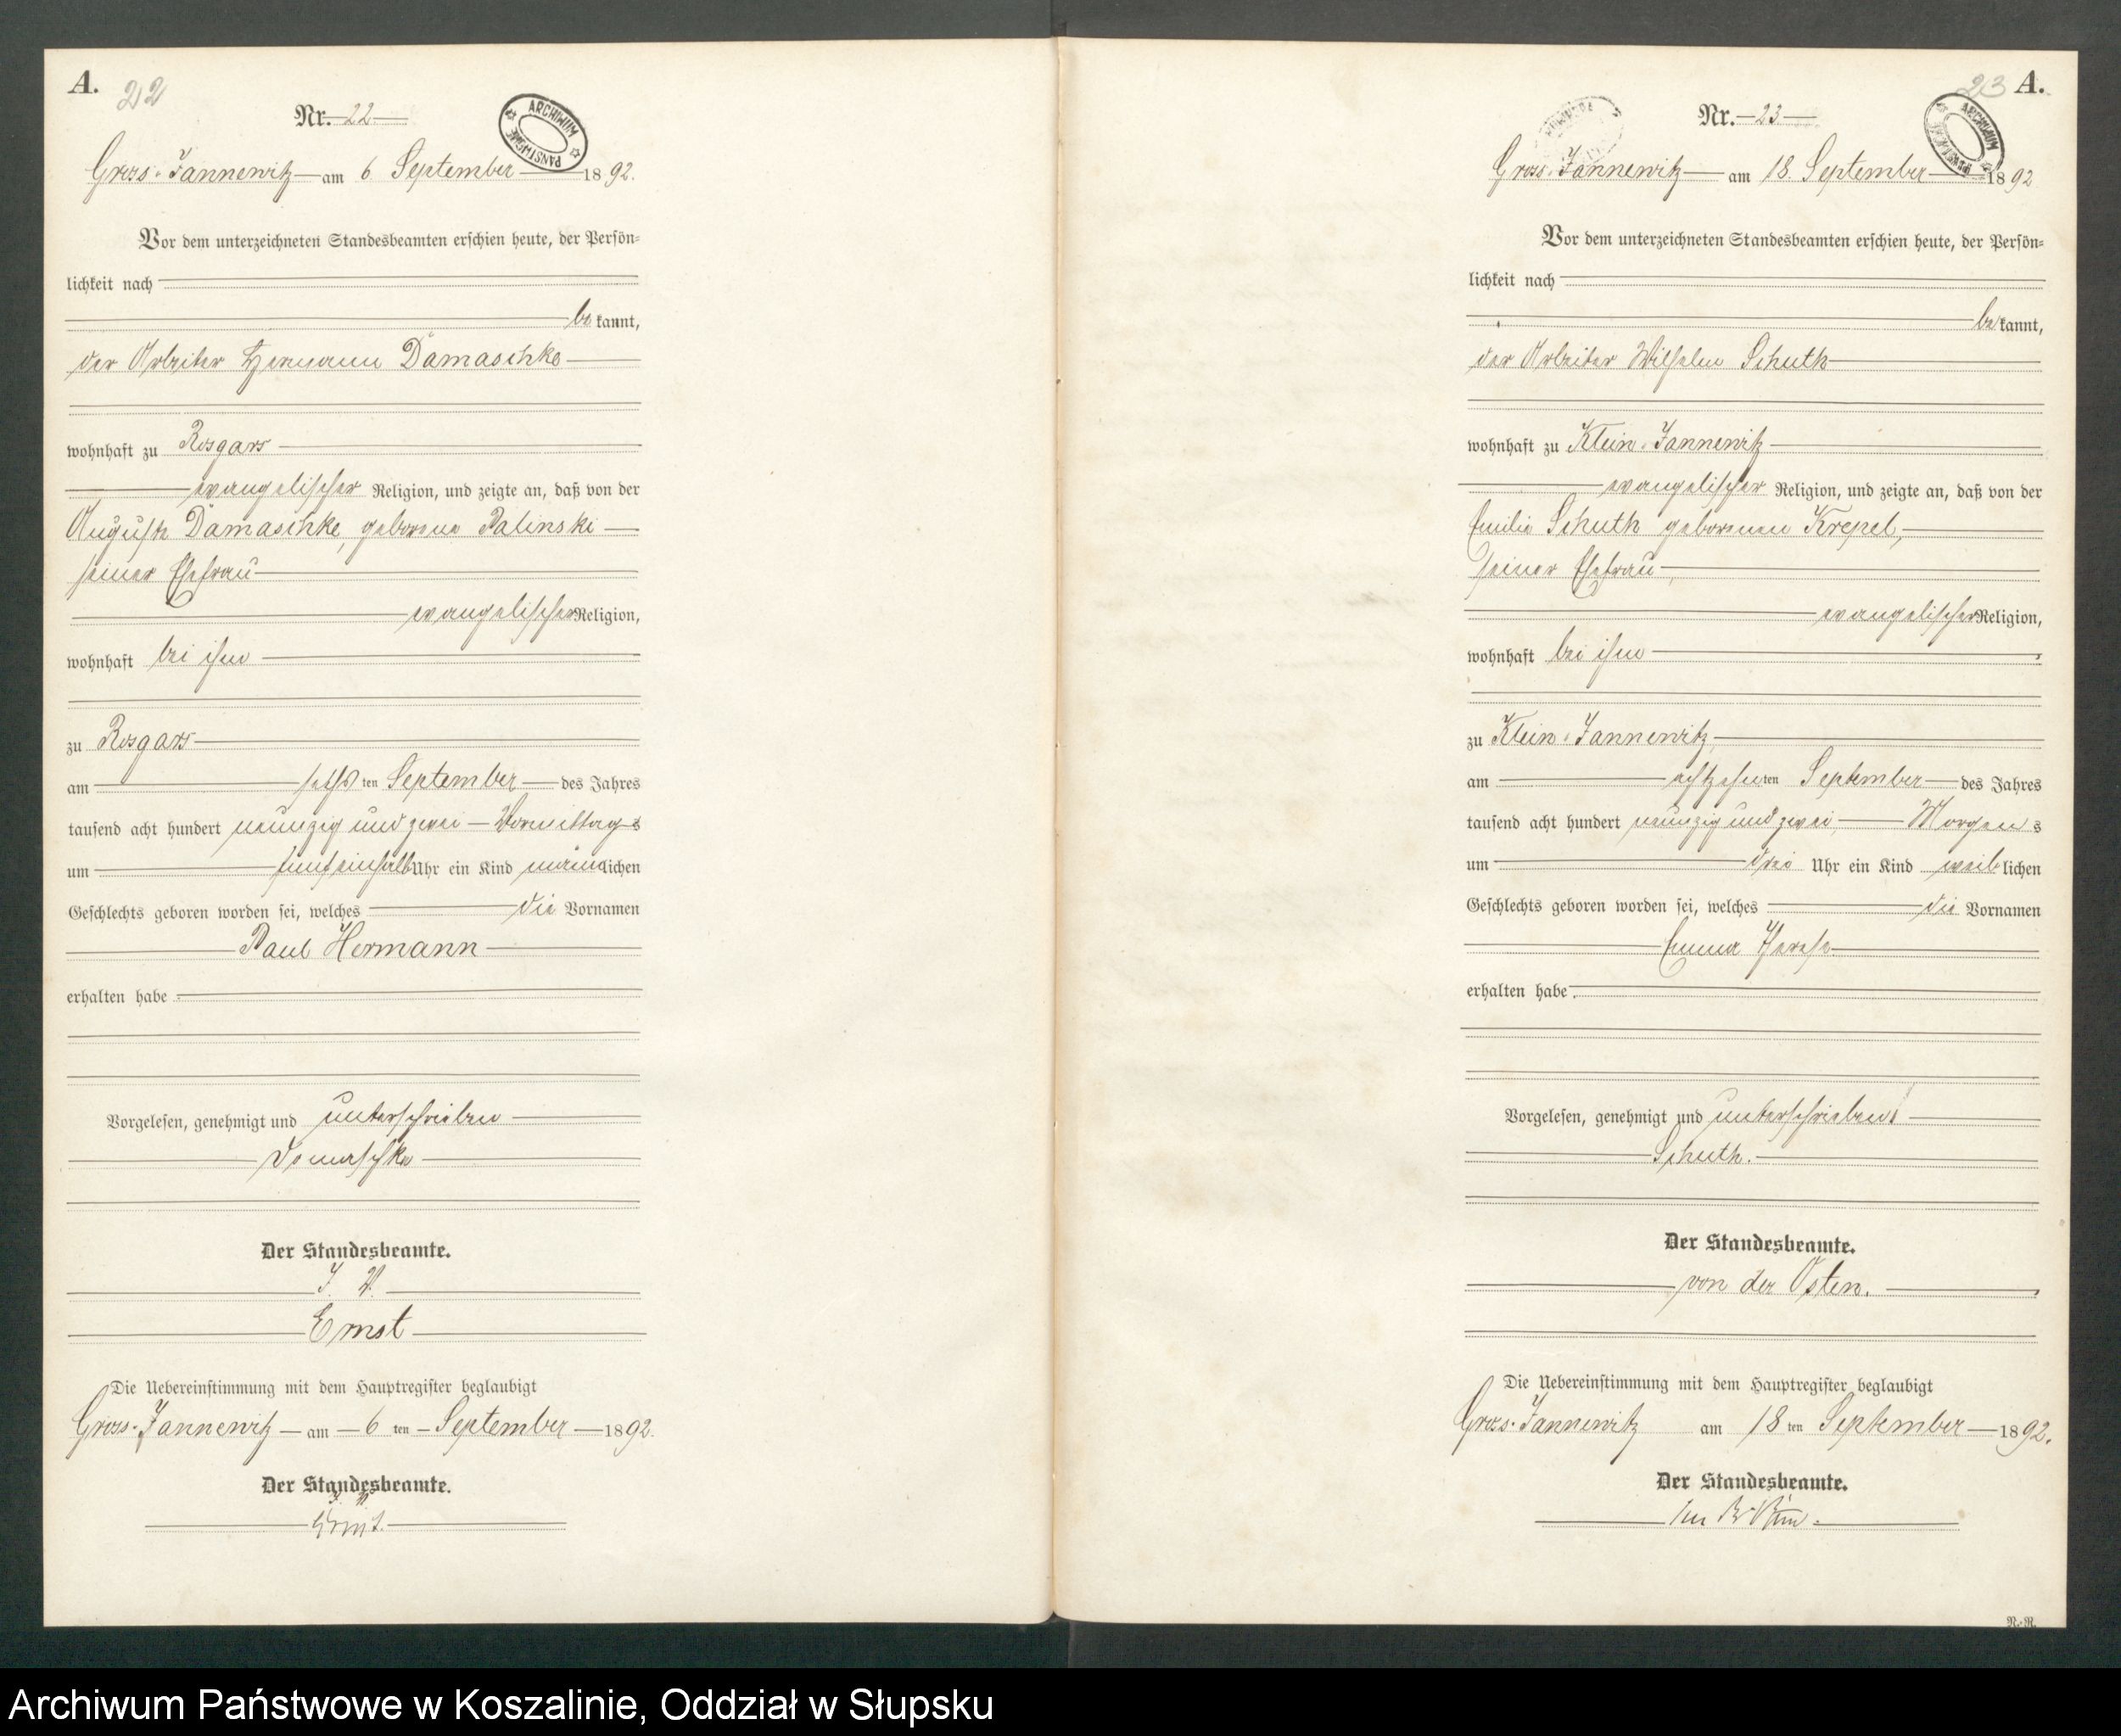 A.
22
Nr. 22
ARCHIWUM PAŃSTWOWE
Gross-Jannewitz am 6 September 1892.
Vor dem unterzeichneten Standesbeamten erschien heute, der Persön=
lichkeit nach
be kannt,
der Arbeiter Hermann Damaschke
wohnhaft zu Rosgars
evangelischer Religion, und zeigte an, daß von der
Auguste Damaschke, geborene Palinski
seiner Ehefrau
evangelischer Religion,
wohnhaft bei ihm
zu Rosgars
am sechsten September des Jahres
tausend acht hundert neunzig und zwei Vormittags
um fünf einhalb Uhr ein Kind männlichen
Geschlechts geboren worden sei, welches die Vornamen
Paul Hermann
erhalten habe
Vorgelesen, genehmigt und unterschrieben
Damaschke
Der Standesbeamte.
J. V.
Ernst
Die Uebereinstimmung mit dem Hauptregister beglaubigt
Gross-Jannewitz am 6 ten September 1892.
Der Standesbeamte.
J. V.
Ernst.
23 A.
Nr. 23
ARCHIWUM PAŃSTWOWE
Gross-Jannewitz am 18 September 1892
Vor dem unterzeichneten Standesbeamten erschien heute, der Persön=
lichkeit nach
be kannt,
der Arbeiter Wilhelm Schuth
wohnhaft zu Klein-Jannewitz
evangelischer Religion, und zeigte an, daß von der
Emilie Schuth geborenen Krepel,
seiner Ehefrau,
evangelischer Religion,
wohnhaft bei ihm
zu Klein-Jannewitz,
am achtzehnten September des Jahres
tausend acht hundert neunzig und zwei Morgens
um drei Uhr ein Kind weiblichen
Geschlechts geboren worden sei, welches die Vornamen
Emma Therese
erhalten habe.
Vorgelesen, genehmigt und unterschrieben
Schuth.
Der Standesbeamte.
von der Osten.
Die Uebereinstimmung mit dem Hauptregister beglaubigt
Gross-Jannewitz am 18 ten September 1892.
Der Standesbeamte.
R.-R.
Archiwum Państwowe w Koszalinie, Oddział w Słupsku